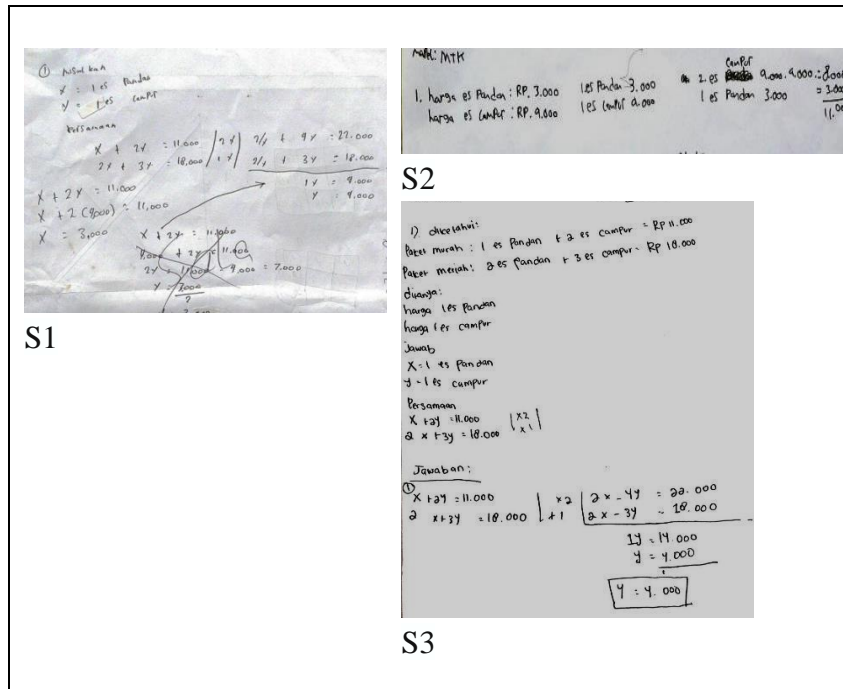 ① Misalkan
x = 1 es Pandan
y = 1 es campur
Persamaan
x + 2y = 11.000
2x + 3y = 18.000
2x + 4y = 22.000
2x + 3y = 18.000
1y = 4.000
y = 4.000
x + 2y = 11.000
x + 2(4000) = 11,000
x = 3,000
x + 2y = 11.000
S1
Mapel: MTK
1. harga es Pandan : RP. 3.000
harga es campur : RP. 4.000
1 es Pandan 3.000
1 es campur 4.000
campur
2 es 4.000. 4.000. : 8.000
1 es Pandan 3.000 = 3.000
11.000
S2
1) diketahui:
Paket murah : 1 es Pandan + 2 es campur = RP 11.000
Paket meriah : 2 es Pandan + 3 es campur = Rp 18.000
ditanya:
harga 1 es Pandan
harga 1 es campur
Jawab
x = 1 es Pandan
y = 1 es campur
Persamaan
x + 2y = 11.000 | x2 |
2 x + 3y = 18.000 | x1 |
Jawaban :
① x + 2y = 11.000 | x2 | 2x - 4y = 22.000
2 x + 3y = 18.000 | + 1 | 2x - 3y = 18.000
1y = 14.000
y = 4.000
y = 4.000
S3